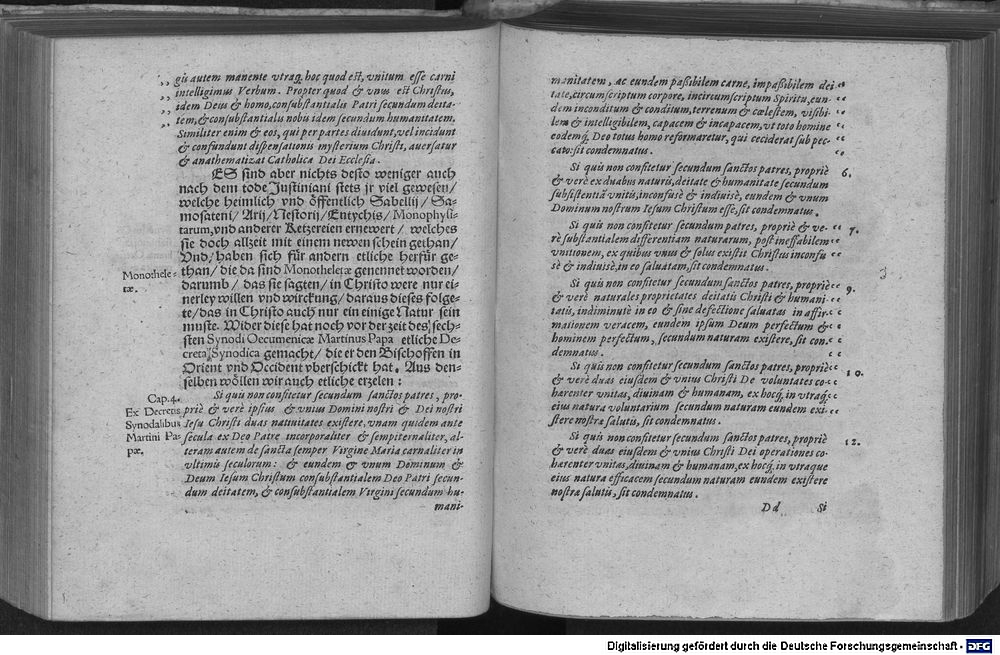 gis autem manente vtraq; hoc quod est, vnitum esse carni
intelligimus Verbum. Propter quod & vnus est Christus,
idem Deus & homo, consubstantialis Patri secundum deita-
tem, & consubstantialis nobis idem secundum humanitatem.
Similiter enim & eos, qui per partes diuidunt, vel incidunt
& confundunt dispensationis mysterium Christi, auersatur
& anathematizat Catholica Dei Ecclesia.
ES sind aber nichts desto weniger auch
nach dem tode Justiniani stets jr viel gewesen/
welche heimlich vnd öffentlich Sabellij/ Sa-
mosateni/ Arij/ Nestorij/ Eutychis/ Monophysi-
tarum, vnd anderer Ketzereien ernewert/ welches
sie doch allzeit mit einem newen schein gethan/
Vnd/ haben sich für andern etliche herfür ge-
than/ die da sind Monotheletæ genennet worden/
Monothele-
tæ.
darumb/ das sie sagten/ in Christo were nur ei-
nerley willen vnd wirckung/ daraus dieses folge-
te/ das in Christo auch nur ein einige Natur sein
muste. Wider diese hat noch vor der zeit des sech-
sten Synodi Oecumenicæ Martinus Papa etliche De-
creta Synodica gemacht/ die er den Bischoffen in
Orient vnd Occident vberschickt hat. Aus den-
selben wöllen wir auch etliche erzelen:
Cap. 4.
Ex Decretis
Synodalibus
Martini Pa-
pæ.
Si quis non confitetur secundum sanctos patres, pro-
priè & verè ipsius & vnius Domini nostri & Dei nostri
Iesu Christi duas natiuitates existere, vnam quidem ante
secula ex Deo Patre incorporaliter & sempiternaliter, al-
teram autem de sancta semper Virgine Maria carnaliter in
vltimis seculorum: & eundem & vnum Dominum &
Deum Iesum Christum consubstantialem Deo Patri secun-
dum deitatem, & consubstantialem Virgini secundum hu-
mani-
manitatem, ac eundem paßibilem carne, impaßibilem dei
tate, circumscriptum corpore, incircumscriptum Spiritu, eun-
dem inconditum & conditum, terrenum & cœlestem, visibi-
lem & intelligibilem, capacem & incapacem, vt toto homine
eodemq; Deo totus homo reformaretur, qui ceciderat sub pec-
cato: sit condemnatus.
Si quis non confitetur secundum sanctos patres, propriè
6.
& verè ex duabus naturis, deitate & humanitate secundum
subsistentiā vnitis, inconfusè & indiuisè, eundem & vnum
Dominum nostrum Iesum Christum esse, sit condemnatus.
Si quis non confitetur secundum patres, propriè & ve-
7.
rè substantialem differentiam naturarum, post ineffabilem
vnitionem, ex quibus vnus & solus existit Christus inconfu
sè & indiuisè, in eo saluatam, sit condemnatus.
Si quis non confitetur secundum sanctos patres, propriè
9.
& verè naturales proprietates deitatis Christi & humani-
tatis, indiminutè in eo & sine defectione saluatas in affir-
mationem veracem, eundem ipsum Deum perfectum &
hominem perfectum, secundum naturam existere, sit con-
demnatus.
Si quis non confitetur secundum sanctos patres, propriè
10.
& verè duas eiusdem & vnius Christi De voluntates co-
hærenter vnitas, diuinam & humanam, ex hocq; in vtraq;
eius natura voluntarium secundum naturam eundem exi-
stere nostræ salutis, sit condemnatus.
Si quis non confitetur secundum sanctos patres, propriè
12.
& verè duas eiusdem & vnius Christi Dei operationes co-
hærenter vnitas, diuinam & humanam, ex hocq; in vtraque
eius natura efficacem secundum naturam eundem existere
nostræ salutis, sit condemnatus.
Dd Si
Digitalisierung gefördert durch die Deutsche Forschungsgemeinschaft - DFG